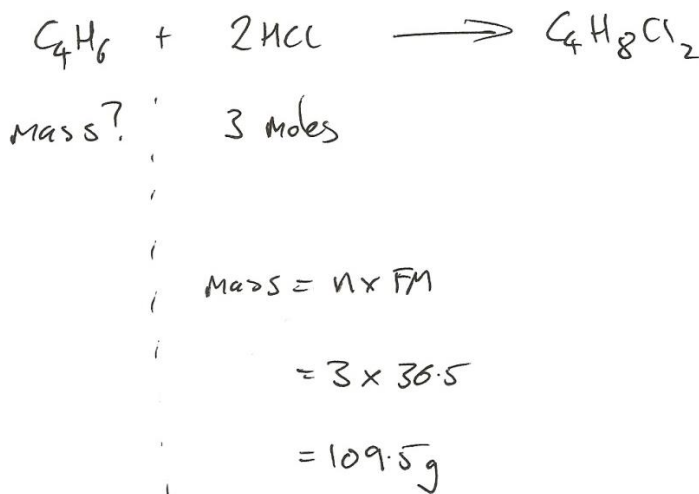 C₄H₆ + 2HCl ⟶ C₄H₈Cl₂
Mass? 3 moles
Mass = n x FM
= 3 x 36.5
= 109.5g